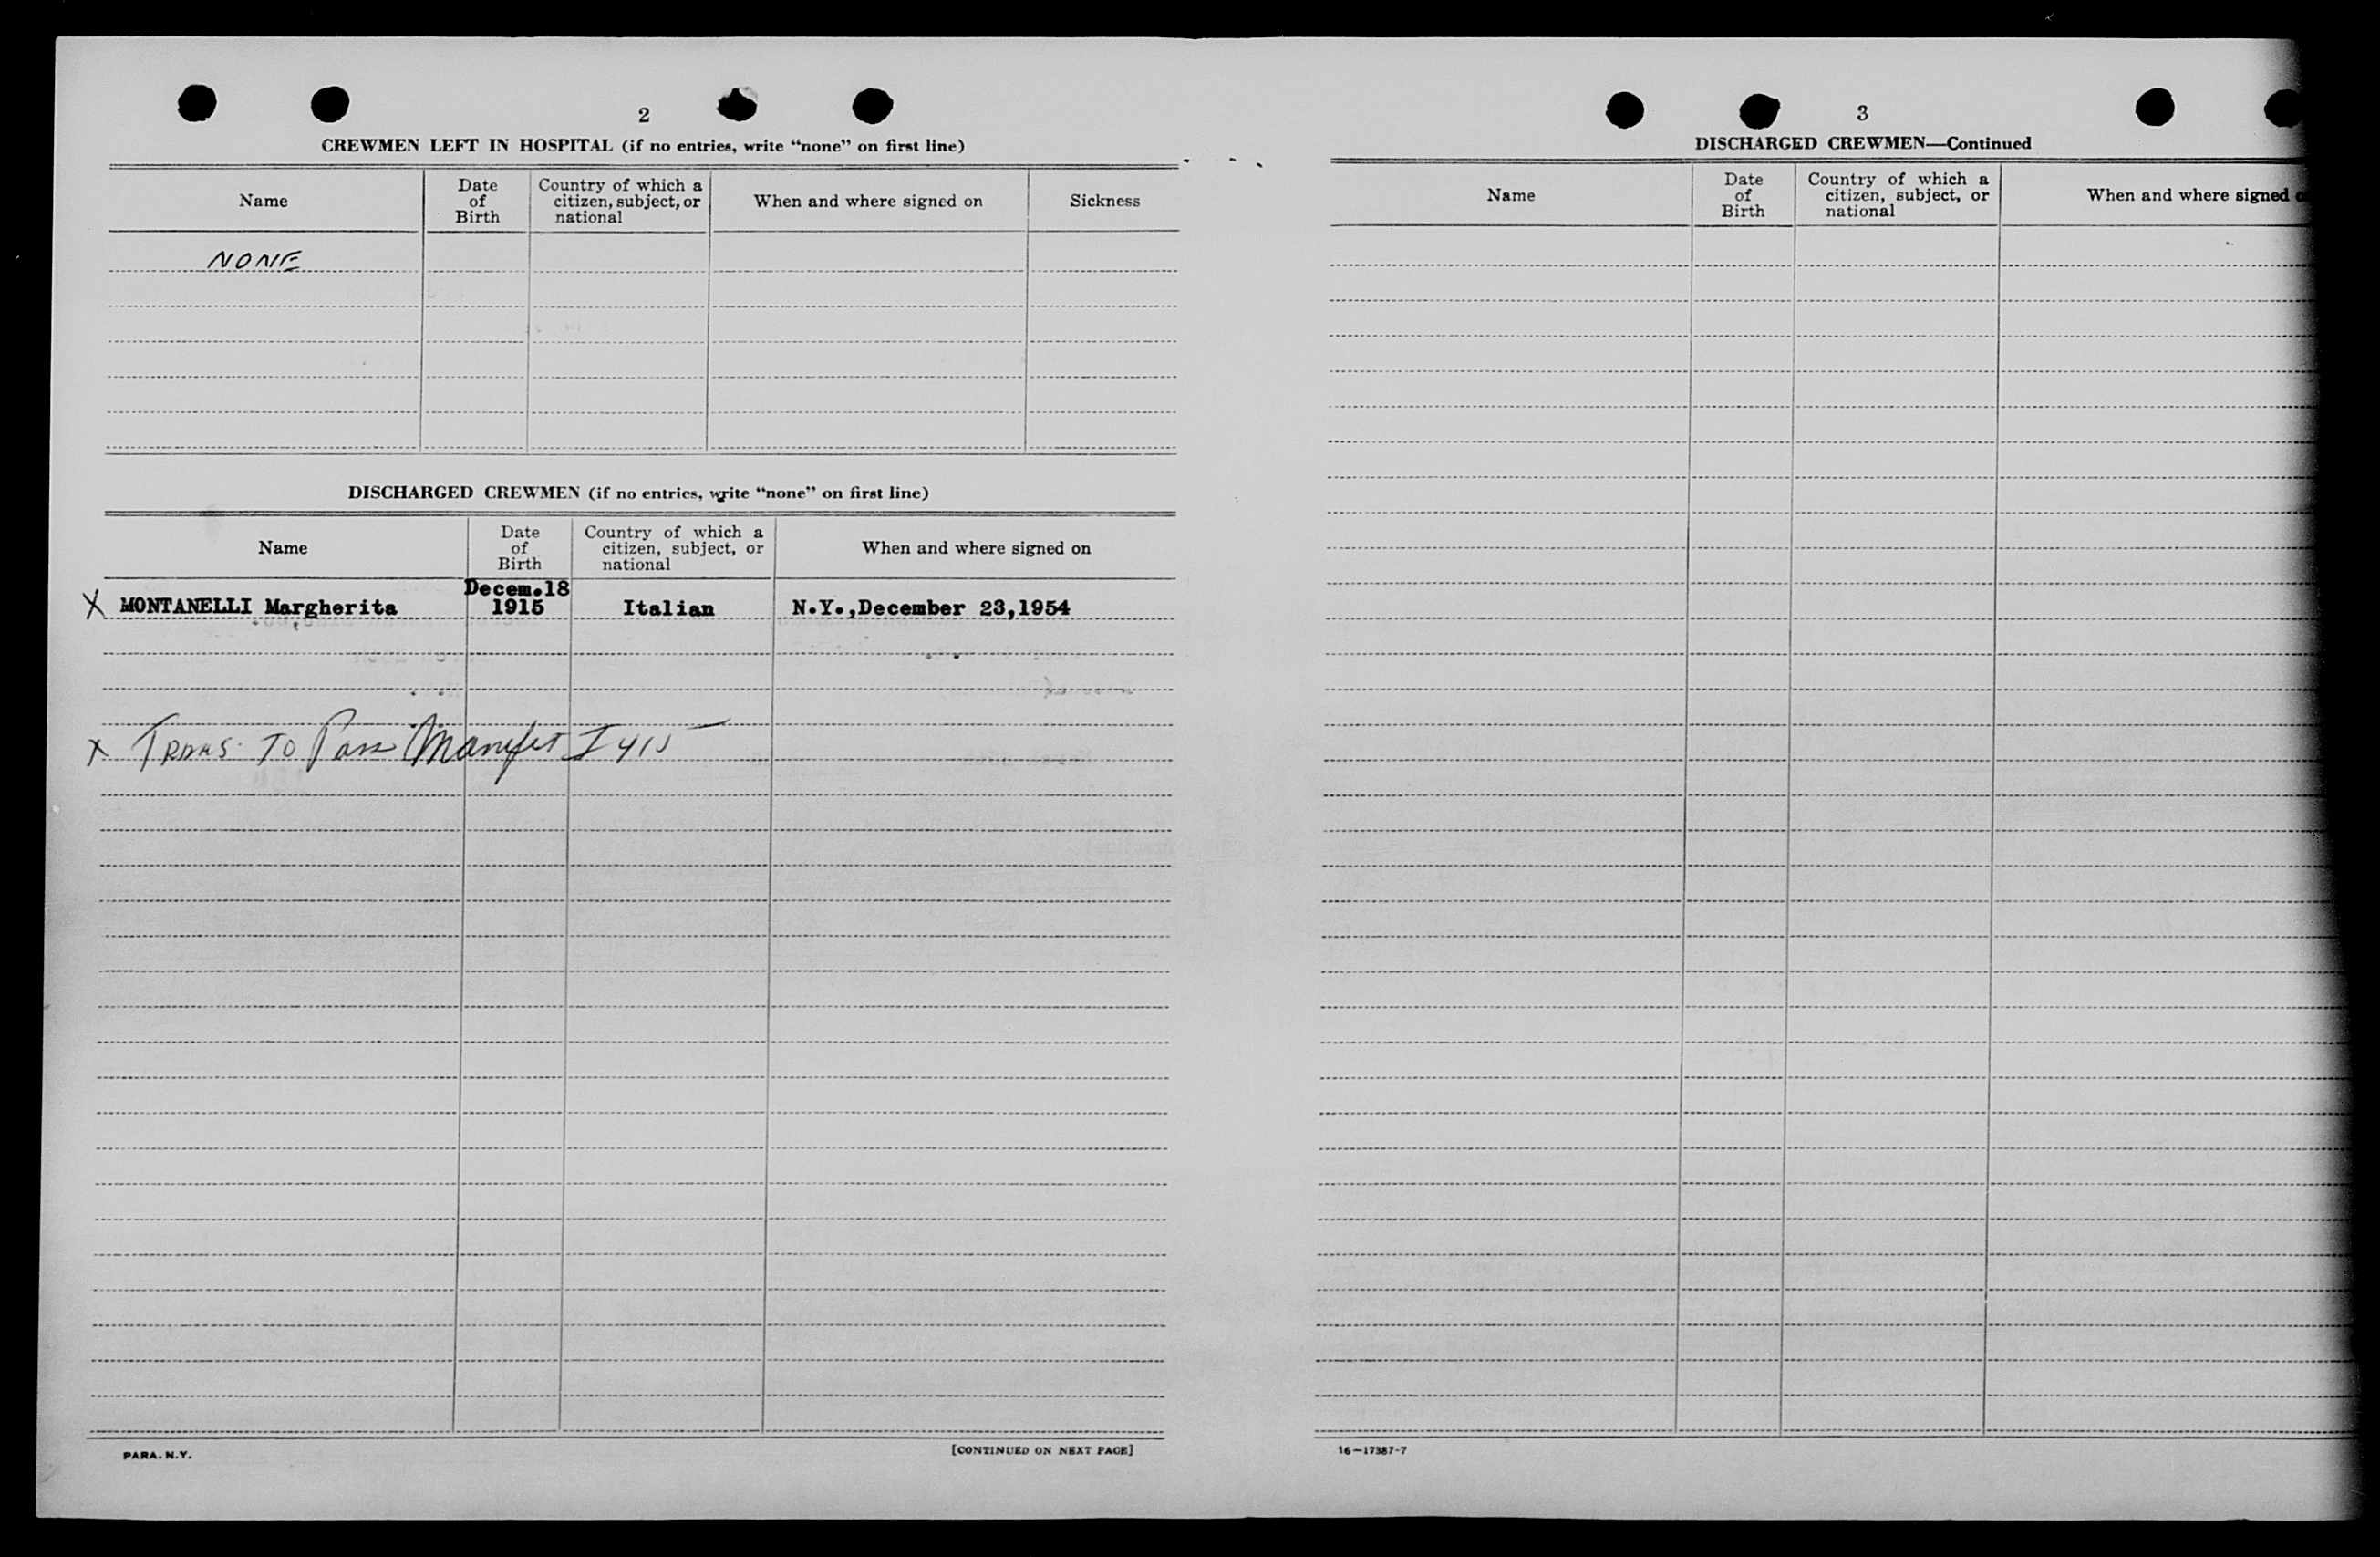 2
CREWMEN LEFT IN HOSPITAL (if no entries, write “none” on first line)
Name
Date of Birth
Country of which a citizen, subject, or national
When and where signed on
Sickness
NONE
DISCHARGED CREWMEN (if no entries, write “none” on first line)
Name
Date of Birth
Country of which a citizen, subject, or national
When and where signed on
X MONTANELLI Margherita Decem.18 1915 Italian N.Y.,December 23,1954
X TRANS. TO Pass Manifest I 415
PARA. N.Y.
[CONTINUED ON NEXT PAGE]
3
DISCHARGED CREWMEN—Continued
Name
Date of Birth
Country of which a citizen, subject, or national
When and where signed
16—17387-7